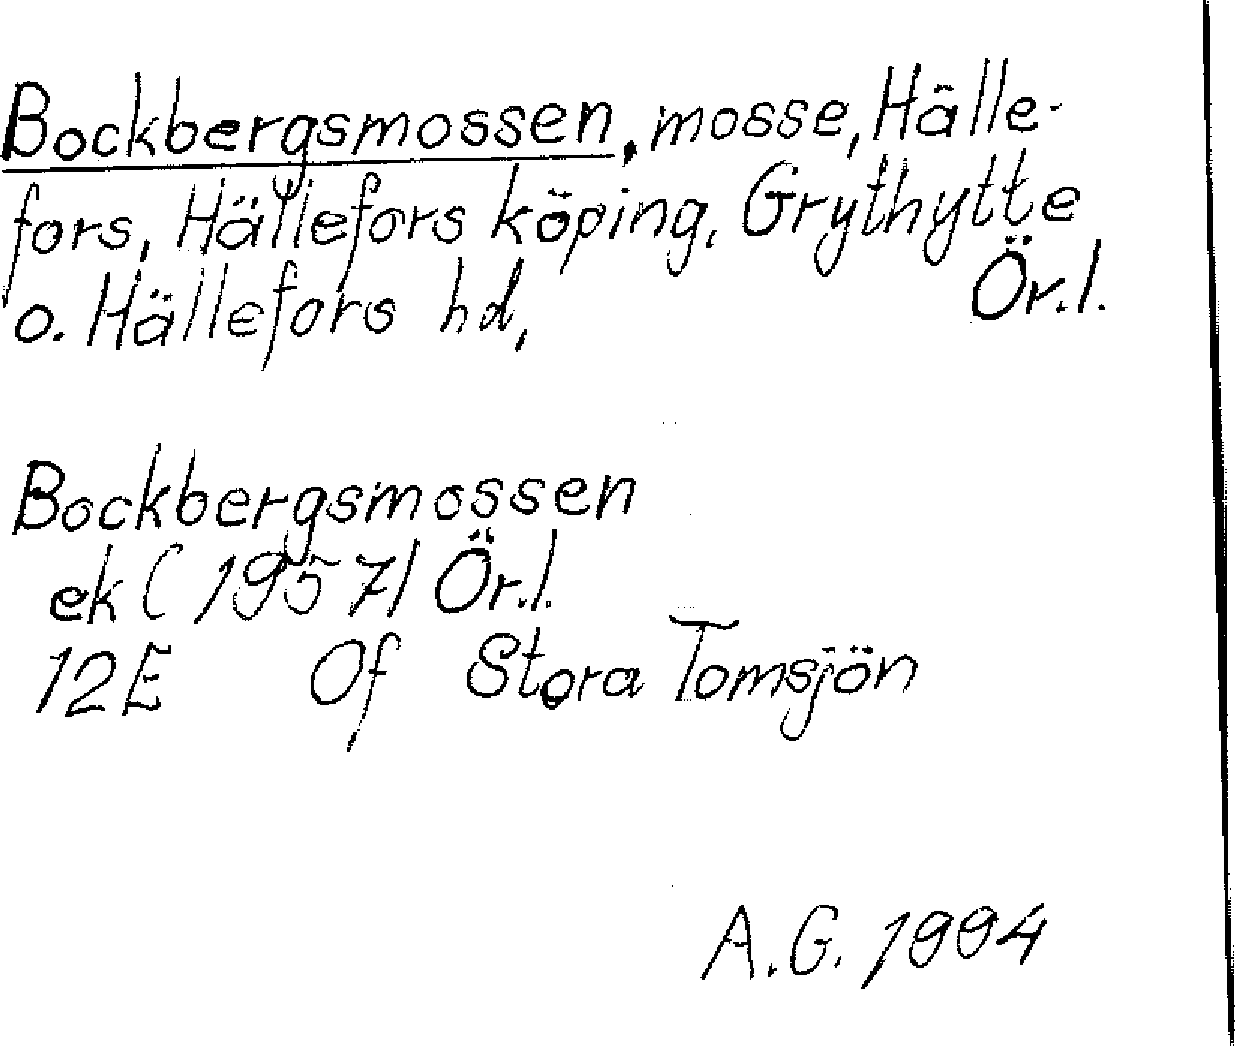 Bockbergsmossen, mosse, Hälle-
fors, Hällefors köping, Grythytte
o. Hällefors hd, Ör.l.
Bockbergsmossen
ek (1957) Ör.l.
12E Of Stora Tomsjön
A.G. 1994